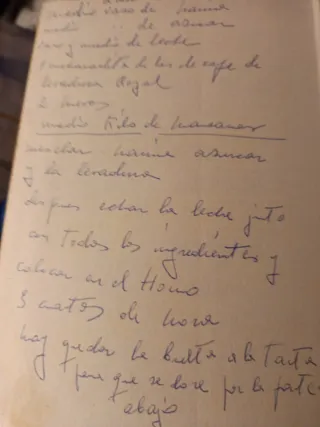 medio vaso de harina
medio de azucar
vaso y medio de leche
1 cucharadita de las de cafe de
levadura Royal
2 huevos
medio Kilo de manzanas
mezclar harina azucar
y la levadura
despues echar la leche junto
con todos los ingredientes y
colocar en el Horno
3 cuartos de hora
hay que dar la vuelta a la tarta
para que se dore por la parte
abajo